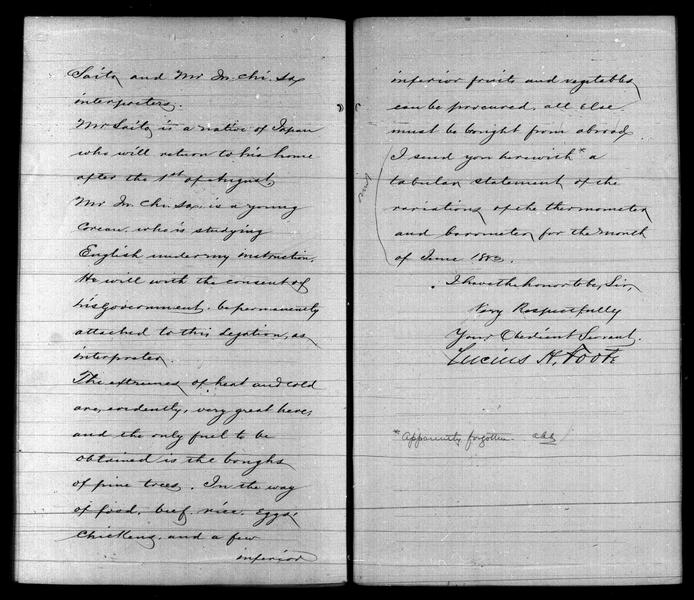 Saito and Mr In. Chi. So,
interpreters.
Mr Saito is a native of Japan
who will return to his home
after the 1st of August.
Mr In. Chi. So. is a young
Corean who is studying
English under my instruction.
He will with the consent of
his Government, be permanently
attached to this Legation, as
interpreter.
The extremes of heat and cold
are, evidently, very great here,
and the only fuel to be
obtained is the boughs
of pine trees. In the way
of food, beef, rice, eggs,
chickens, and a few
inferior
inferior fruits and vegetables
can be procured, all else
must be bought from abroad.
I send you herewith* a
tabular statement of the
variations of the thermometer
and barometer for the month
of June 1883.
I have the honor to be, Sir,
Very Respectfully
Your Obedient Servant.
Lucius H. Foote
* Apparently forgotten.